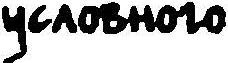 условного